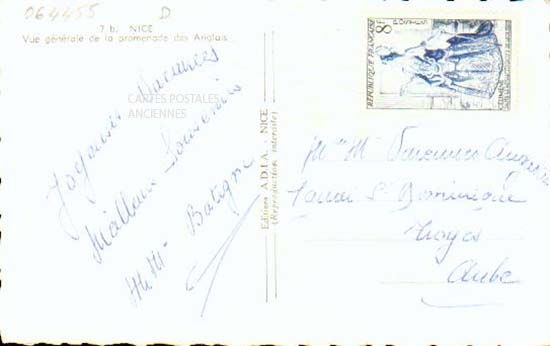 064455 D
7 b. NICE
Vue générale de la promenade des Anglais
CARTES POSTALES
ANCIENNES
Joyeuses Vacances
Meilleurs Souvenirs
M. Mme Batigne
Editions A.D.I.A. - NICE
(Reproduction interdite)
REPUBLIQUE FRANÇAISE
8F
POSTES
CELIMENE
M. Mme
St Dominique
Troyes
Aube